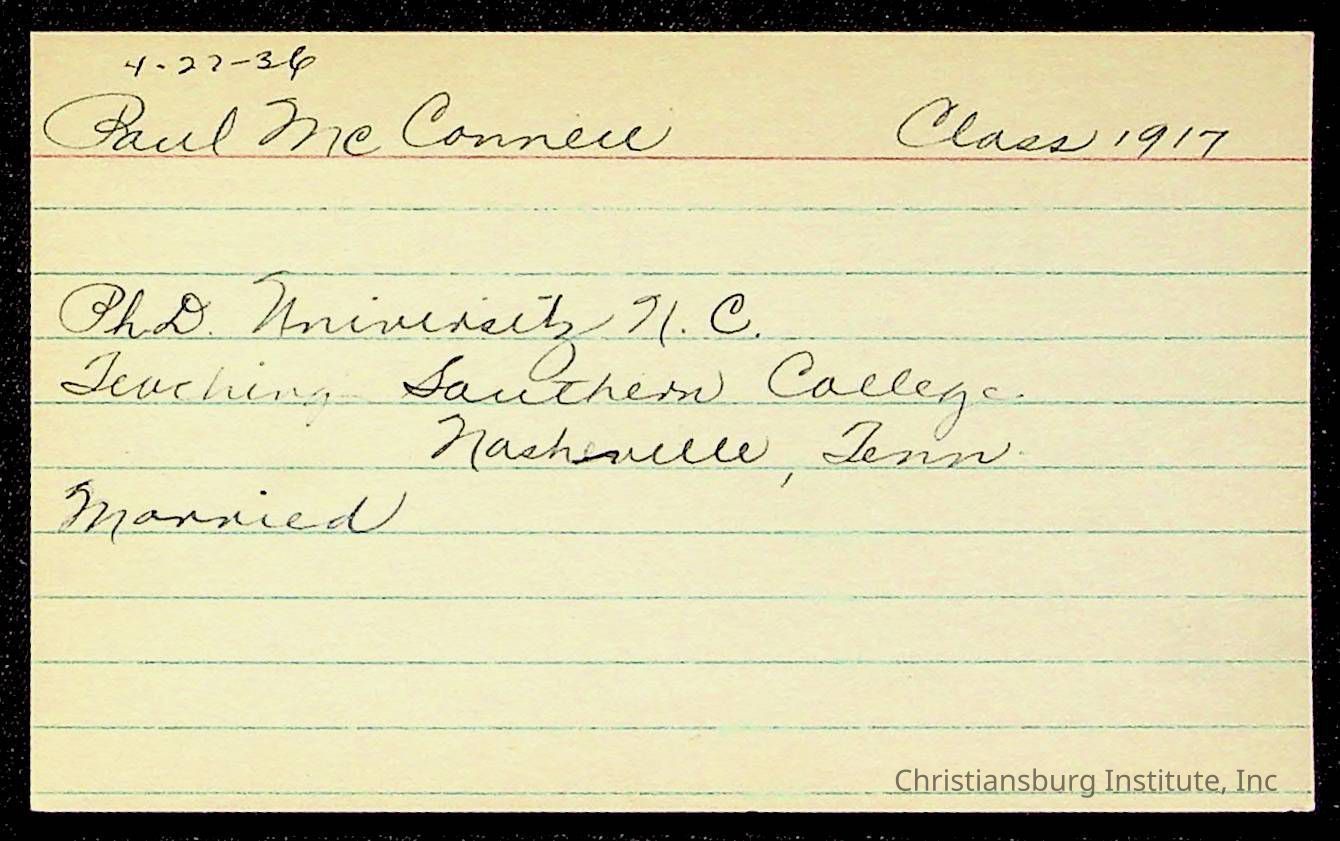 4-27-36
Paul Mc Connell Class 1917
Ph.D. University N. C.
Teaching Southern College
Nashville, Tenn
Married
Christiansburg Institute, Inc